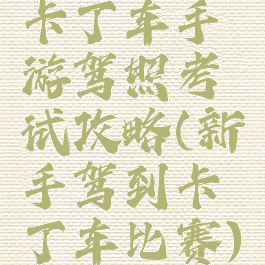 卡丁车手
游驾照考
试攻略(新
手驾到卡
丁车比赛)